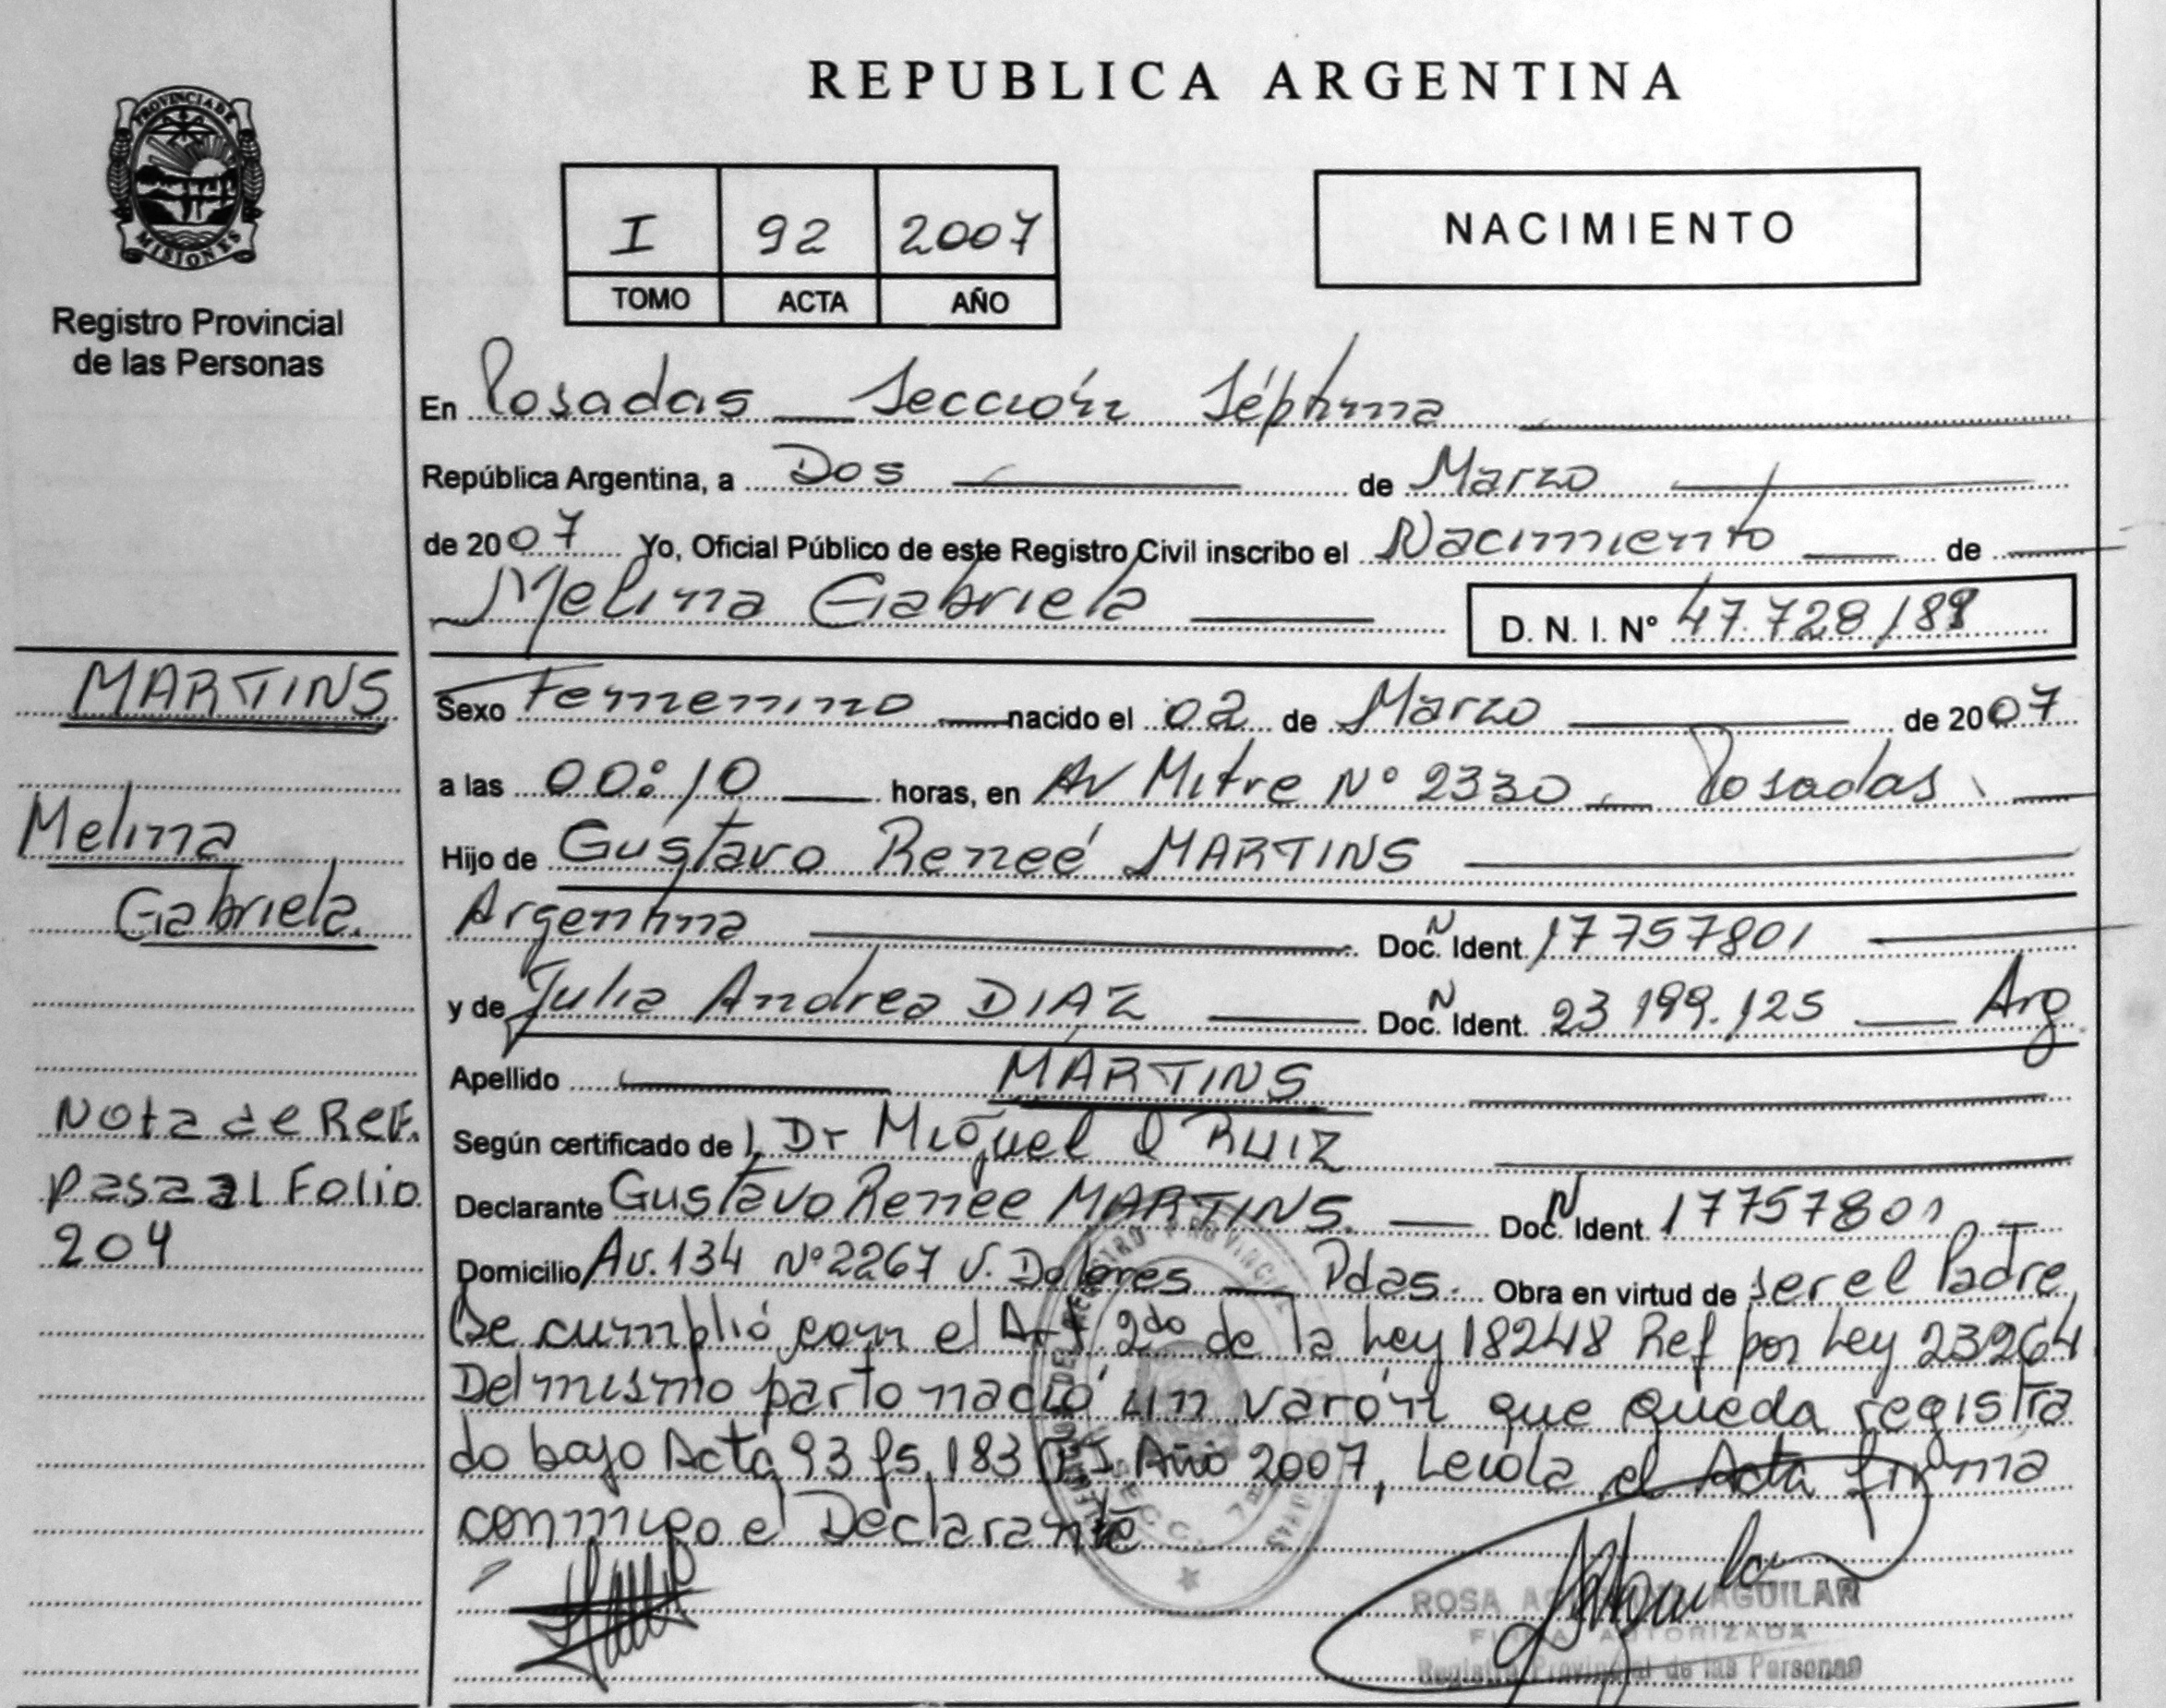 PROVINCIA DE
MISIONES
Registro Provincial
de las Personas
MARTINS
Melina
Gabriela.
Nota de Ref.
pasa al Folio
204
REPUBLICA ARGENTINA
I 92 2007
TOMO ACTA AÑO
NACIMIENTO
En Posadas Sección Séptima
República Argentina, a Dos de Marzo
de 2007 Yo, Oficial Público de este Registro Civil inscribo el Nacimiento de
Melina Gabriela D. N. I. Nº 47.728/
Sexo Femenino nacido el 02 de Marzo de 2007
a las 00:10 horas, en Av Mitre Nº 2330 Posadas
Hijo de Gustavo Reneé MARTINS
Argentina Doc. N Ident. 17757801
y de Julia Andrea DIAZ Doc. N Ident. 23 199.125 Arg
Apellido MARTINS
Según certificado de Dr Miguel RUIZ
Declarante Gustavo Renee MARTINS. Doc. N Ident. 17757801
Domicilio Av. 134 Nº 2267 V. Dolores Pdas. Obra en virtud de ser el Padre
Se cumplió con el Art 2do de la Ley 18248 Ref por Ley 23264
Del mismo parto nació un varón que queda registra
do bajo Acta 93 fs. 183 Año 2007, Leída el Acta firma
conmigo el Declarante
ROSA AGUILAR
FIRMA AUTORIZADA
Registro Provincial de las Personas